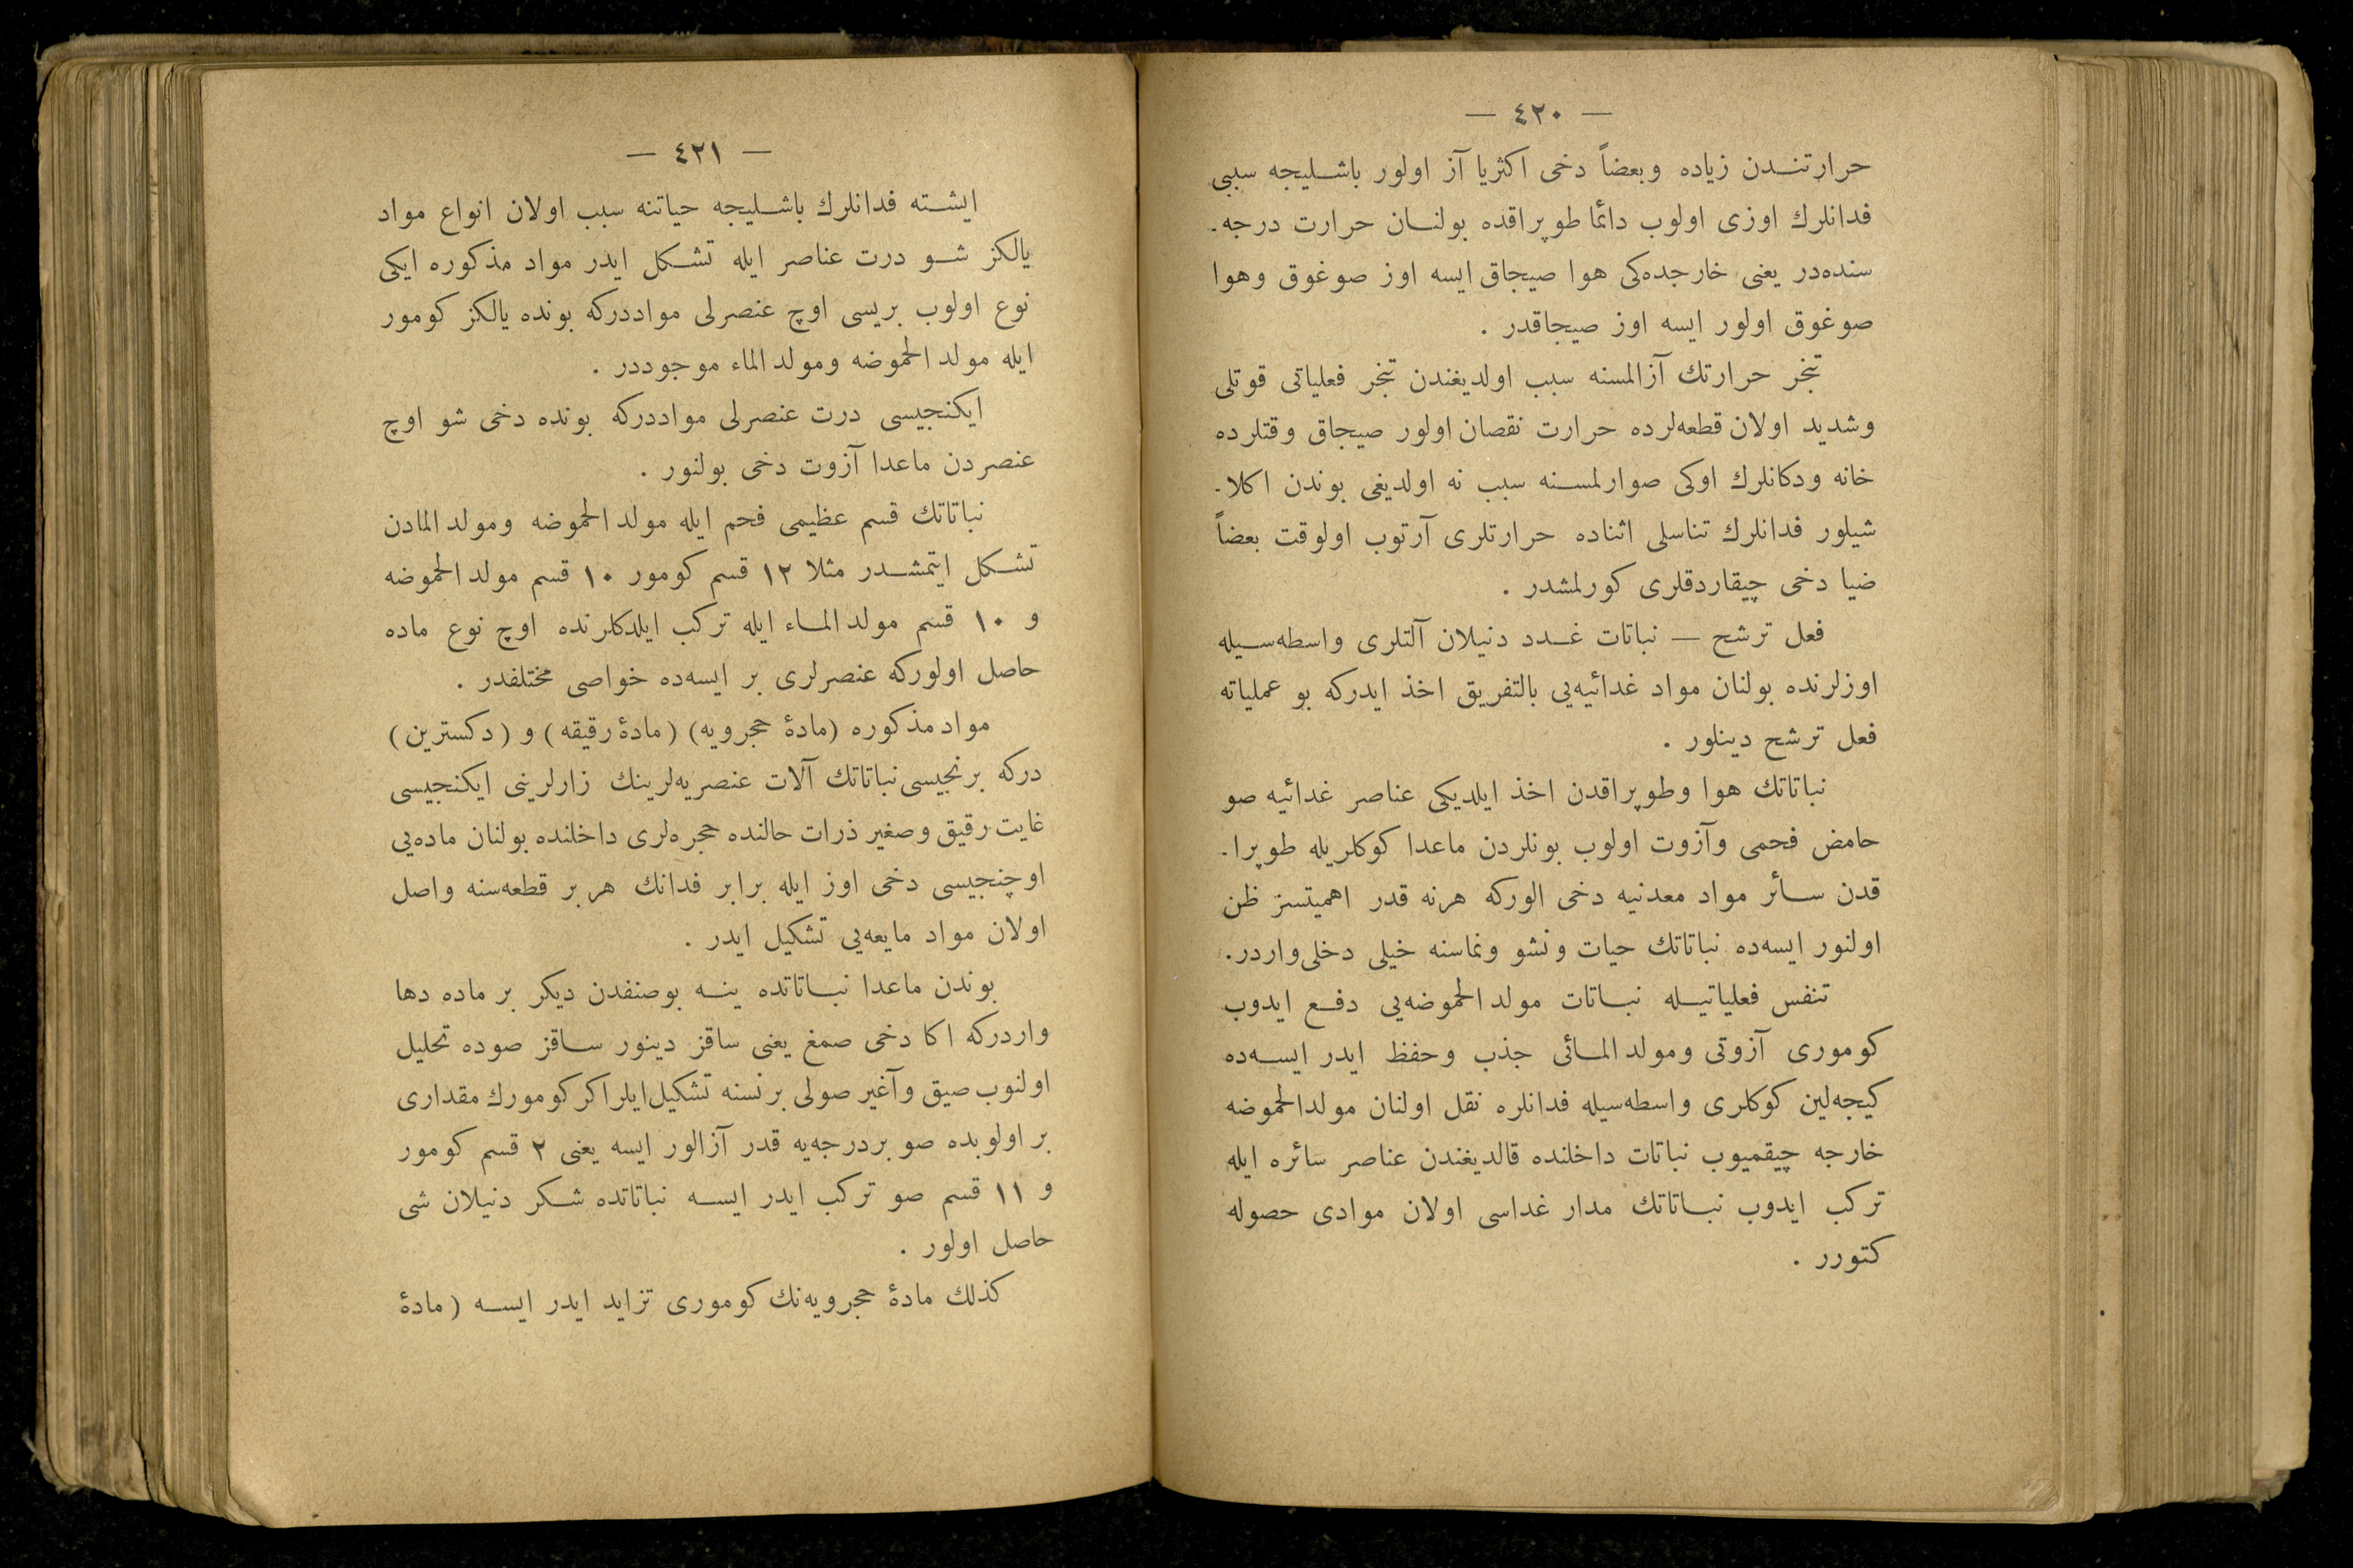 — ٤٢٠ —
حرارتندن زیاده وبعضاً دخی اكثریا آز اولور باشلیجه سببی
فدانلرك اوزی اولوب دائما طوپراقده بولنان حرارت درجه‌-
سنده‌در یعنی خارجده‌كی هوا صیجاق ایسه اوز صوغوق وهوا
صوغوق اولور ایسه اوز صیجاقدر .
تبخر حرارتك آزالمسنه سبب اولدیغندن تبخر فعلیاتی قوتلی
وشدید اولان قطعه‌لرده حرارت نقصان اولور صیجاق وقتلرده
خانه ودكانلرك اوكی صوارلمسنه سبب نه اولدیغی بوندن اكلا-
شیلور فدانلرك تناسلی اثناده حرارتلری آرتوب اولوقت بعضاً
ضیا دخی چیقاردقلری كورلمشدر .
فعل ترشح — نباتات غدد دنیلان آلتلری واسطه‌سیله
اوزلرنده بولنان مواد غدائیه‌یی بالتفریق اخذ ایدركه بو عملیاته
فعل ترشح دینلور .
نباتاتك هوا وطوپراقدن اخذ ایلدیكی عناصر غدائیه صو
حامض فحمی وآزوت اولوب بونلردن ماعدا كوكلریله طوپرا-
قدن سائر مواد معدنیه دخی الوركه هرنه قدر اهمیتسز ظن
اولنور ایسه‌ده نباتاتك حیات ونشو ونماسنه خیلی دخلی‌واردر.
تنفس فعلیاتیله نباتات مولد الحموضه‌یی دفع ایدوب
كوموری آزوتی ومولد المائی جذب وحفظ ایدر ایسه‌ده
كیجه‌لین كوكلری واسطه‌سیله فدانلره نقل اولنان مولدالحموضه
خارجه چیقمیوب نباتات داخلنده قالدیغندن عناصر سائره ایله
تركب ایدوب نباتاتك مدار غداسی اولان موادی حصوله
كتورر .
— ٤٢١ —
ایشته فدانلرك باشلیجه حیاتنه سبب اولان انواع مواد
یالكز شو درت عناصر ایله تشكل ایدر مواد مذكوره ایكی
نوع اولوب بریسی اوچ عنصرلی مواددركه بونده یالكز كومور
ایله مولد الحموضه ومولد الماء موجوددر .
ایكنجیسی درت عنصرلی مواددركه بونده دخی شو اوچ
عنصردن ماعدا آزوت دخی بولنور .
نباتاتك قسم عظیمی فحم ایله مولد الحموضه ومولد المادن
تشكل ایتمشدر مثلا ١٢ قسم كومور ١٠ قسم مولد الحموضه
و ١٠ قسم مولد الماء ایله تركب ایلدكلرنده اوچ نوع ماده
حاصل اولوركه عنصرلری بر ایسه‌ده خواصی مختلفدر .
مواد مذكوره (مادهٔ حجرویه) (مادهٔ رقیقه) و (دكسترین)
دركه برنجیسی نباتاتك آلات عنصریه‌لرینك زارلرینی ایكنجیسی
غایت رقیق وصغیر ذرات حالنده حجره‌لری داخلنده بولنان ماده‌یی
اوچنجیسی دخی اوز ایله برابر فدانك هر بر قطعه‌سنه واصل
اولان مواد مایعه‌یی تشكیل ایدر .
بوندن ماعدا نباتاتده ینه بوصنفدن دیكر بر ماده دها
واردركه اكا دخی صمغ یعنی ساقز دینور ساقز صوده تحلیل
اولنوب صیق وآغیر صولی برنسنه تشكیل‌ایلر اكر كومورك مقداری
بر اولوبده صو بردرجه‌یه قدر آزالور ایسه یعنی ٢ قسم كومور
و ١١ قسم صو تركب ایدر ایسه نباتاتده شكر دنیلان شی
حاصل اولور .
كذلك مادهٔ حجرویه‌نك كوموری تزاید ایدر ایسه (مادهٔ